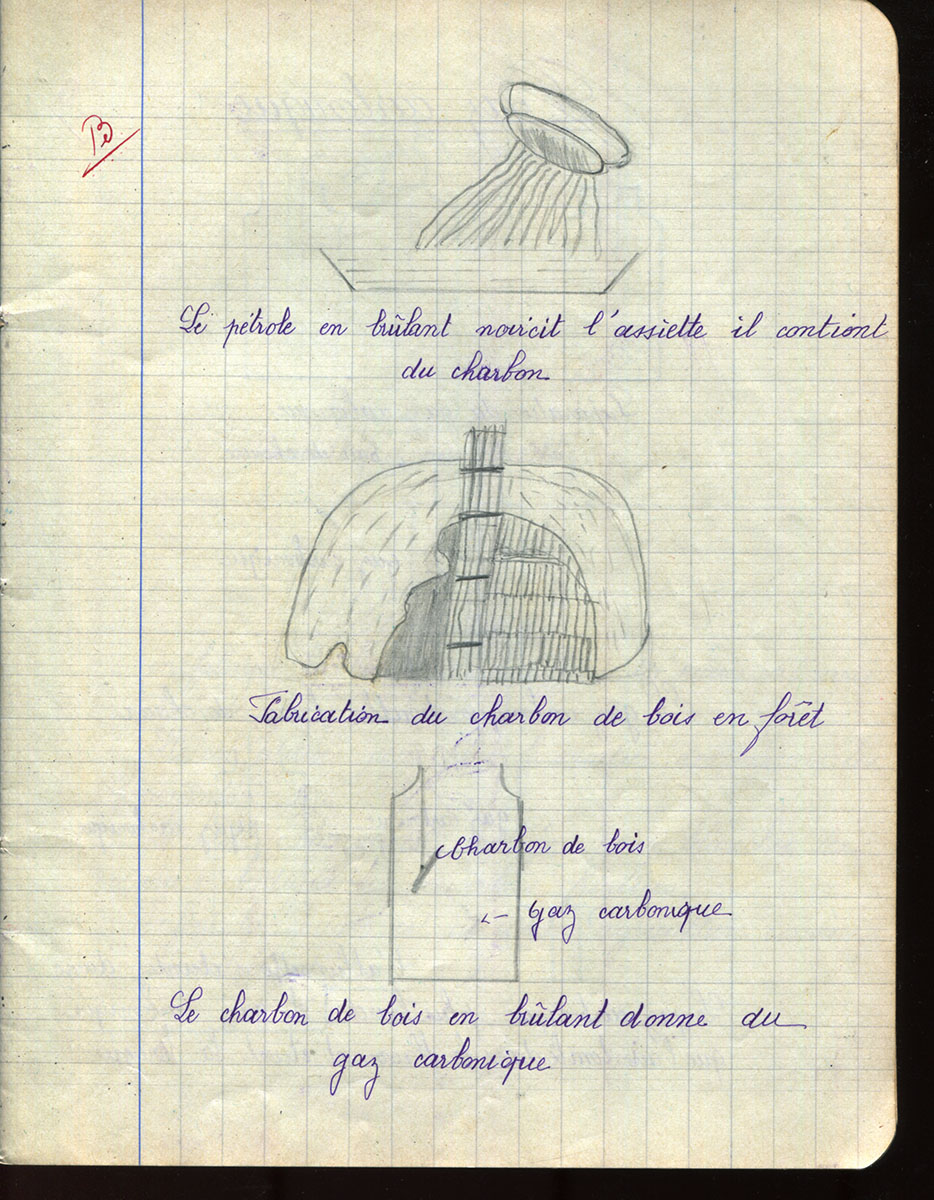 Le pétrole en brûlant noircit l'assiette il contient
du charbon
Fabrication du charbon de bois en forêt
Charbon de bois
gaz carbonique
Le charbon de bois en brûlant donne du
gaz carbonique